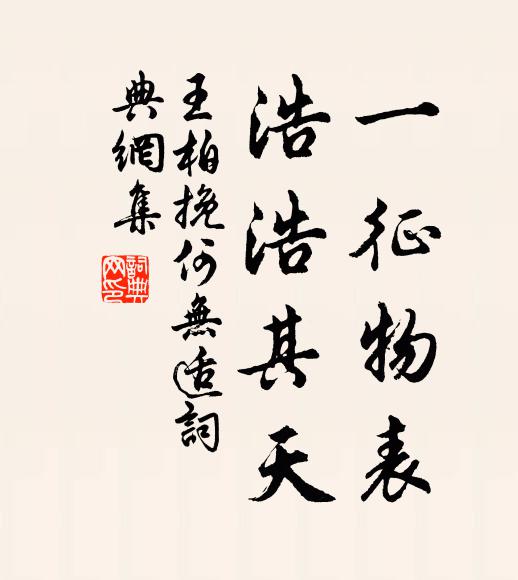 一征物表
浩浩其天
王柏挽何無适詞
典網集
詞典網印